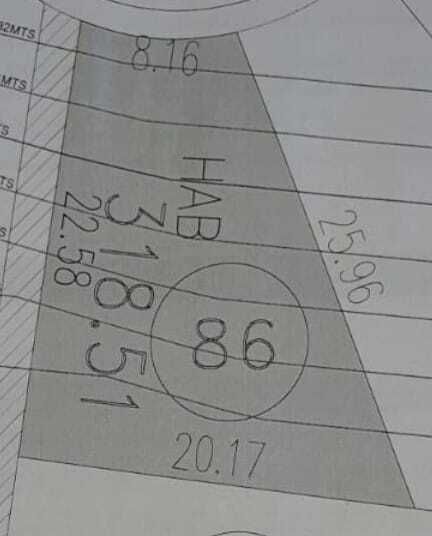 8.16
HAB
318.51
22.58
25.96
86
20.17
MTS